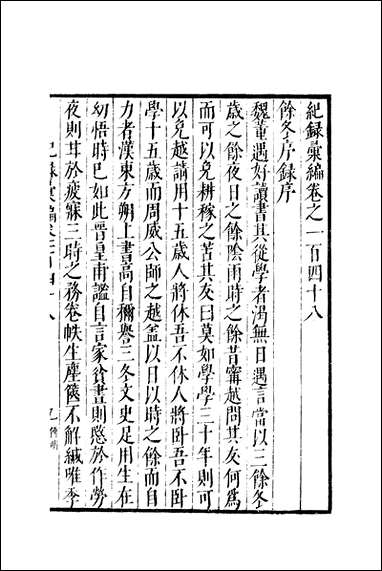 紀録彙編卷之一百四十八
餘冬序録序
魏董遇好讀書其從學者渴無日遇言當以三餘冬
歲之餘夜日之餘陰雨時之餘昔甯越問其友何爲
而可以免耕稼之苦其友曰莫如學學三十年則可
以免越請用十五歲人將休吾不休人將卧吾不卧
學十五歲而周威公師之越葢以日以時之餘而自
力者漢東方朔上書高自稱譽三冬文史足用生在
幼悟時已如此晉皇甫謐自言家貧晝則愍於作勞
夜則耳於疲寐三時之務卷帙生塵篋不解緘唯季
紀録彙編卷之一百四十八